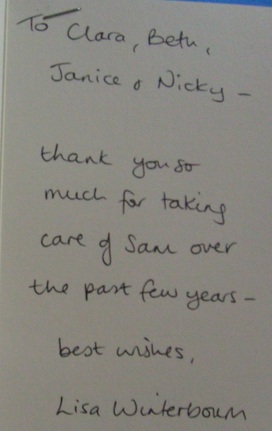 To Clara, Beth,
Janice & Nicky –
thank you so
much for taking
care of Sam over
the past few years –
best wishes,
Lisa Winterbourn